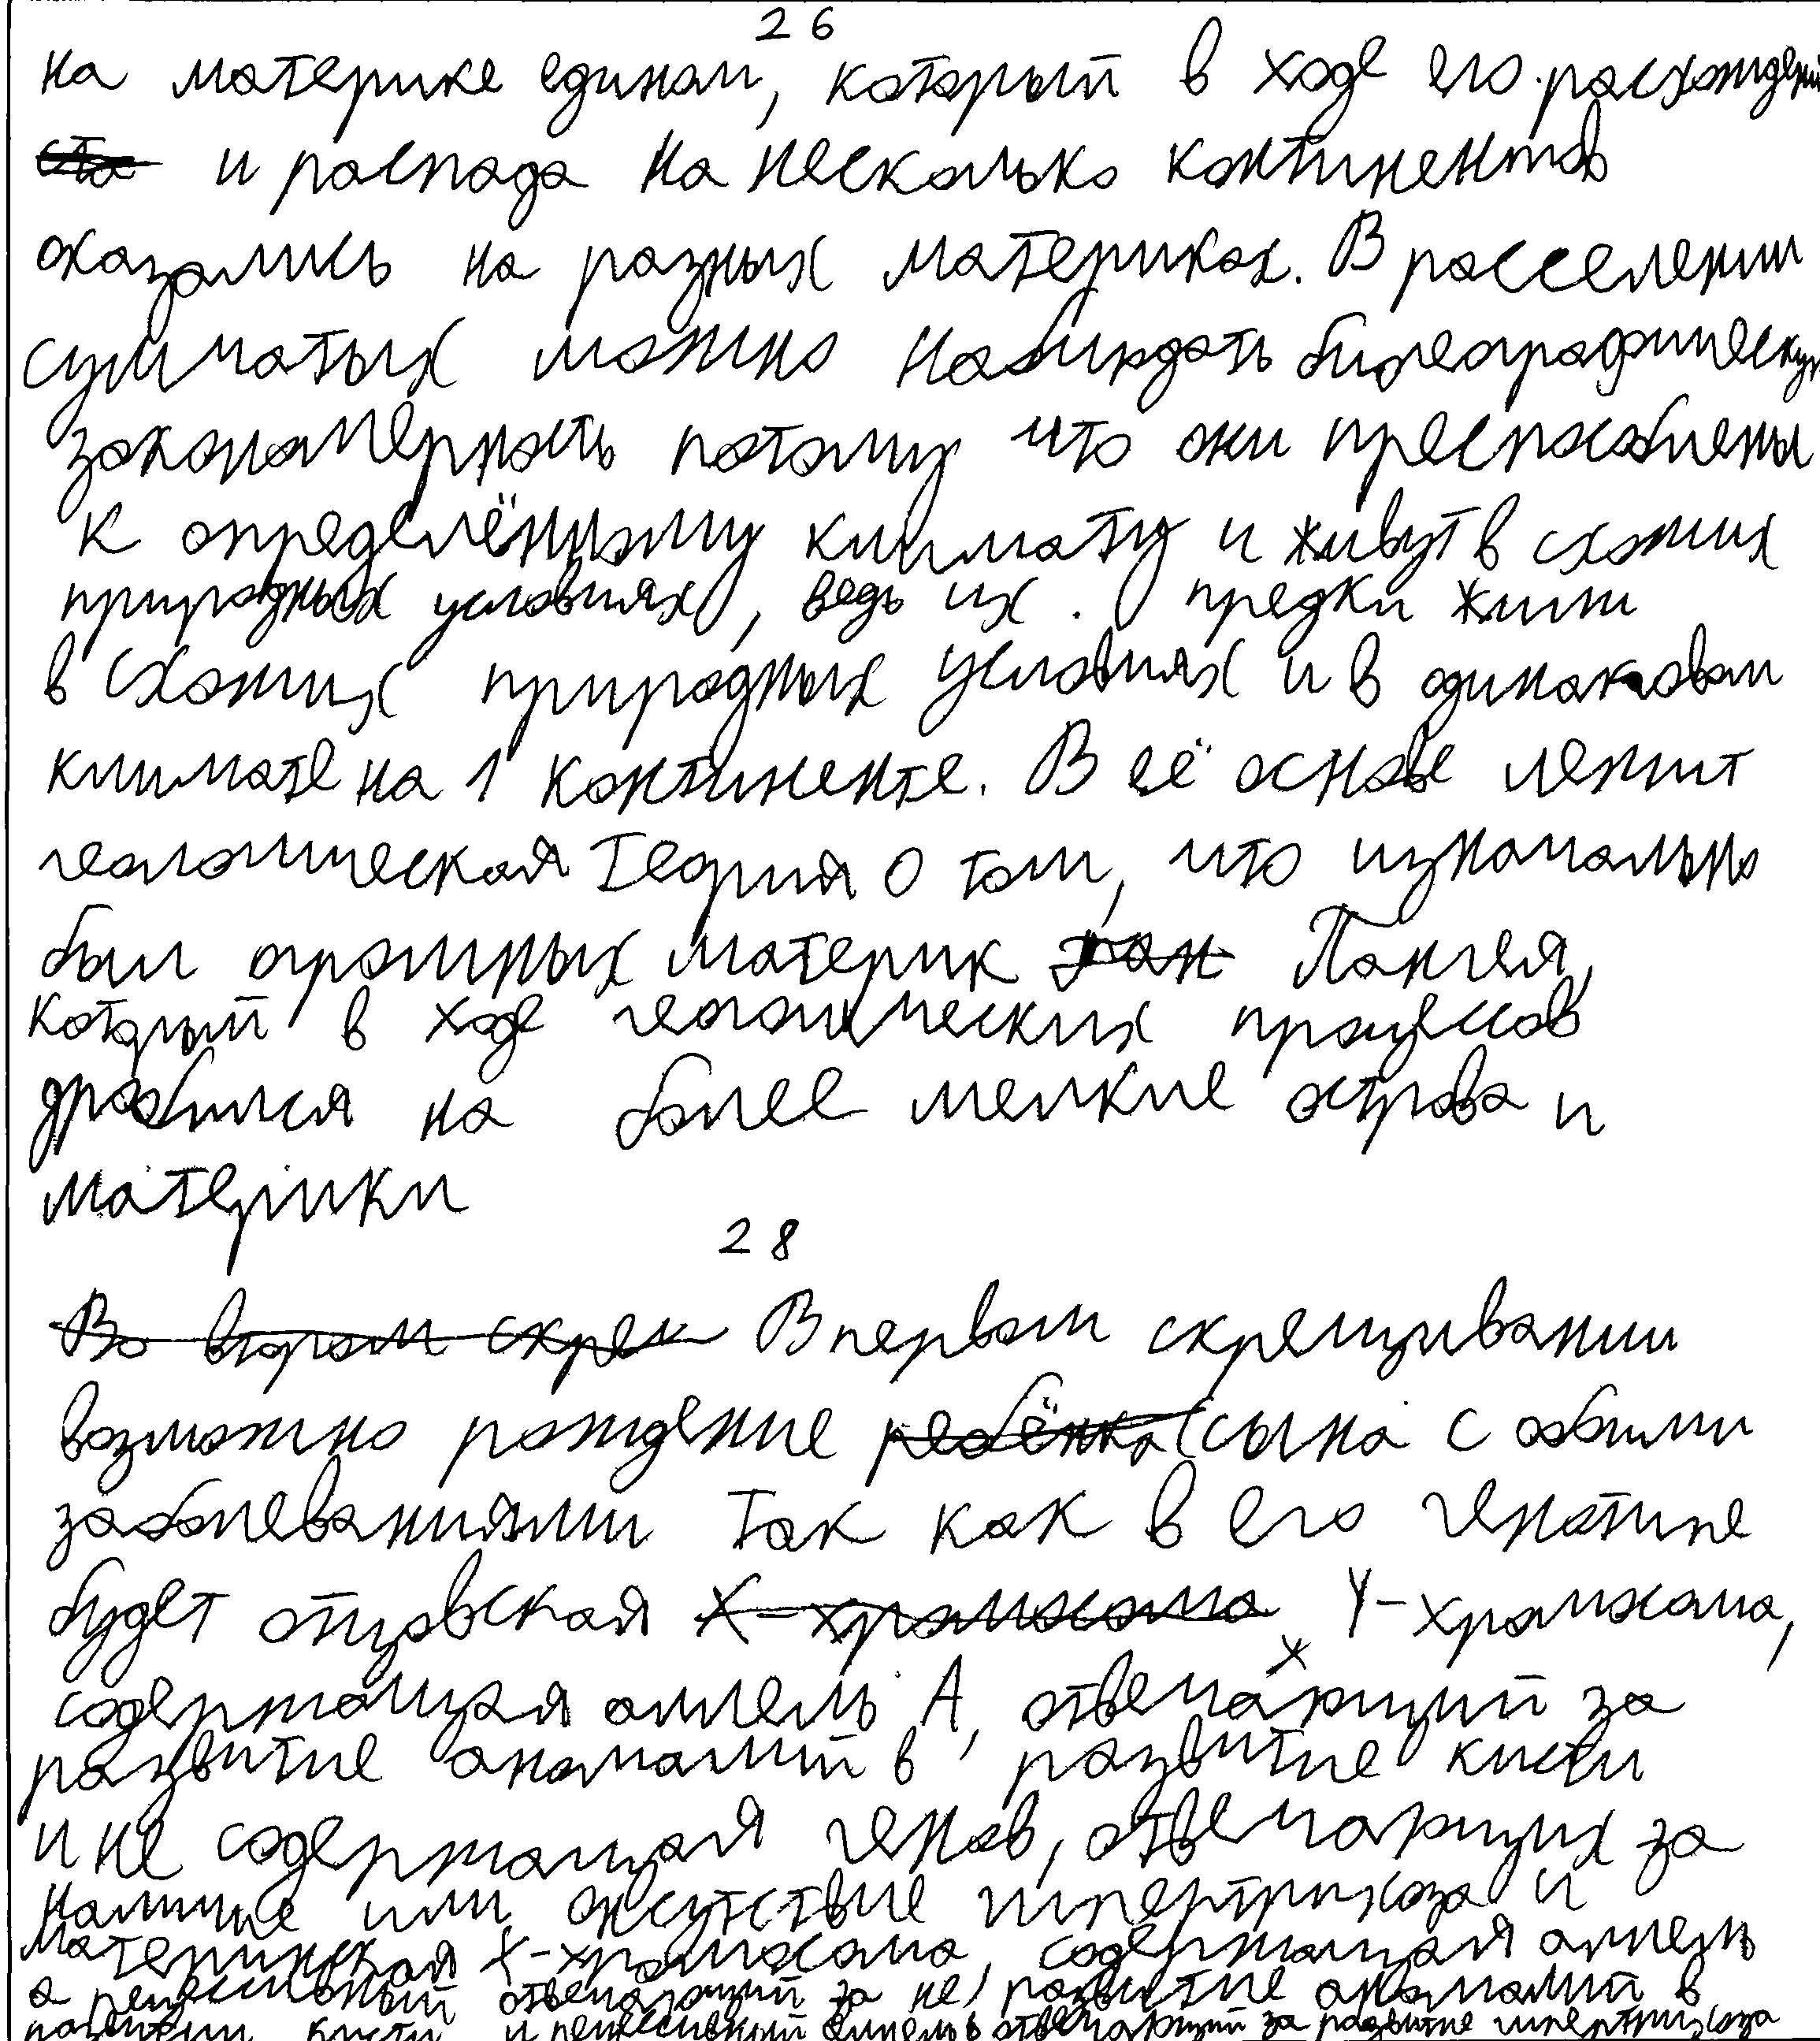 26
на материке едином, который в ходе его расхождения
и распада на несколько континентов
оказались на разных материках. В расселении
сумчатых можно наблюдать биогеографическую
закономерность потому что они преспособлены
к определённому климату и живут в схожих
природных условиях, ведь их предки жили
в схожих природных условиях и в одинаковом
климате на 1 континенте. В её основе лежит
геологическая теория о том, что изначально
был огромных материк Пангея,
который в ходе геологических процессов
дробился на более мелкие острова и
материки
28
Во втором скрек В первом скрещивании
возможно рождение ребёнка сына с обоими
заболеваниями так как в его генотипе
будет отцовская X-хромосома Y-хромосома,
содержащая аллель A, отвечающий за
развитие аномалий в развитие кисти
и не содержащая генов, отвечающих за
наличие или отсутствие гипертрихоза и
материнская X-хромосома, содержащая аллель
a рецессивный отвечающий за не развитие аномалий в
развитии кисти и рецессивный аллель b отвечающий за развитие гипертрихоза